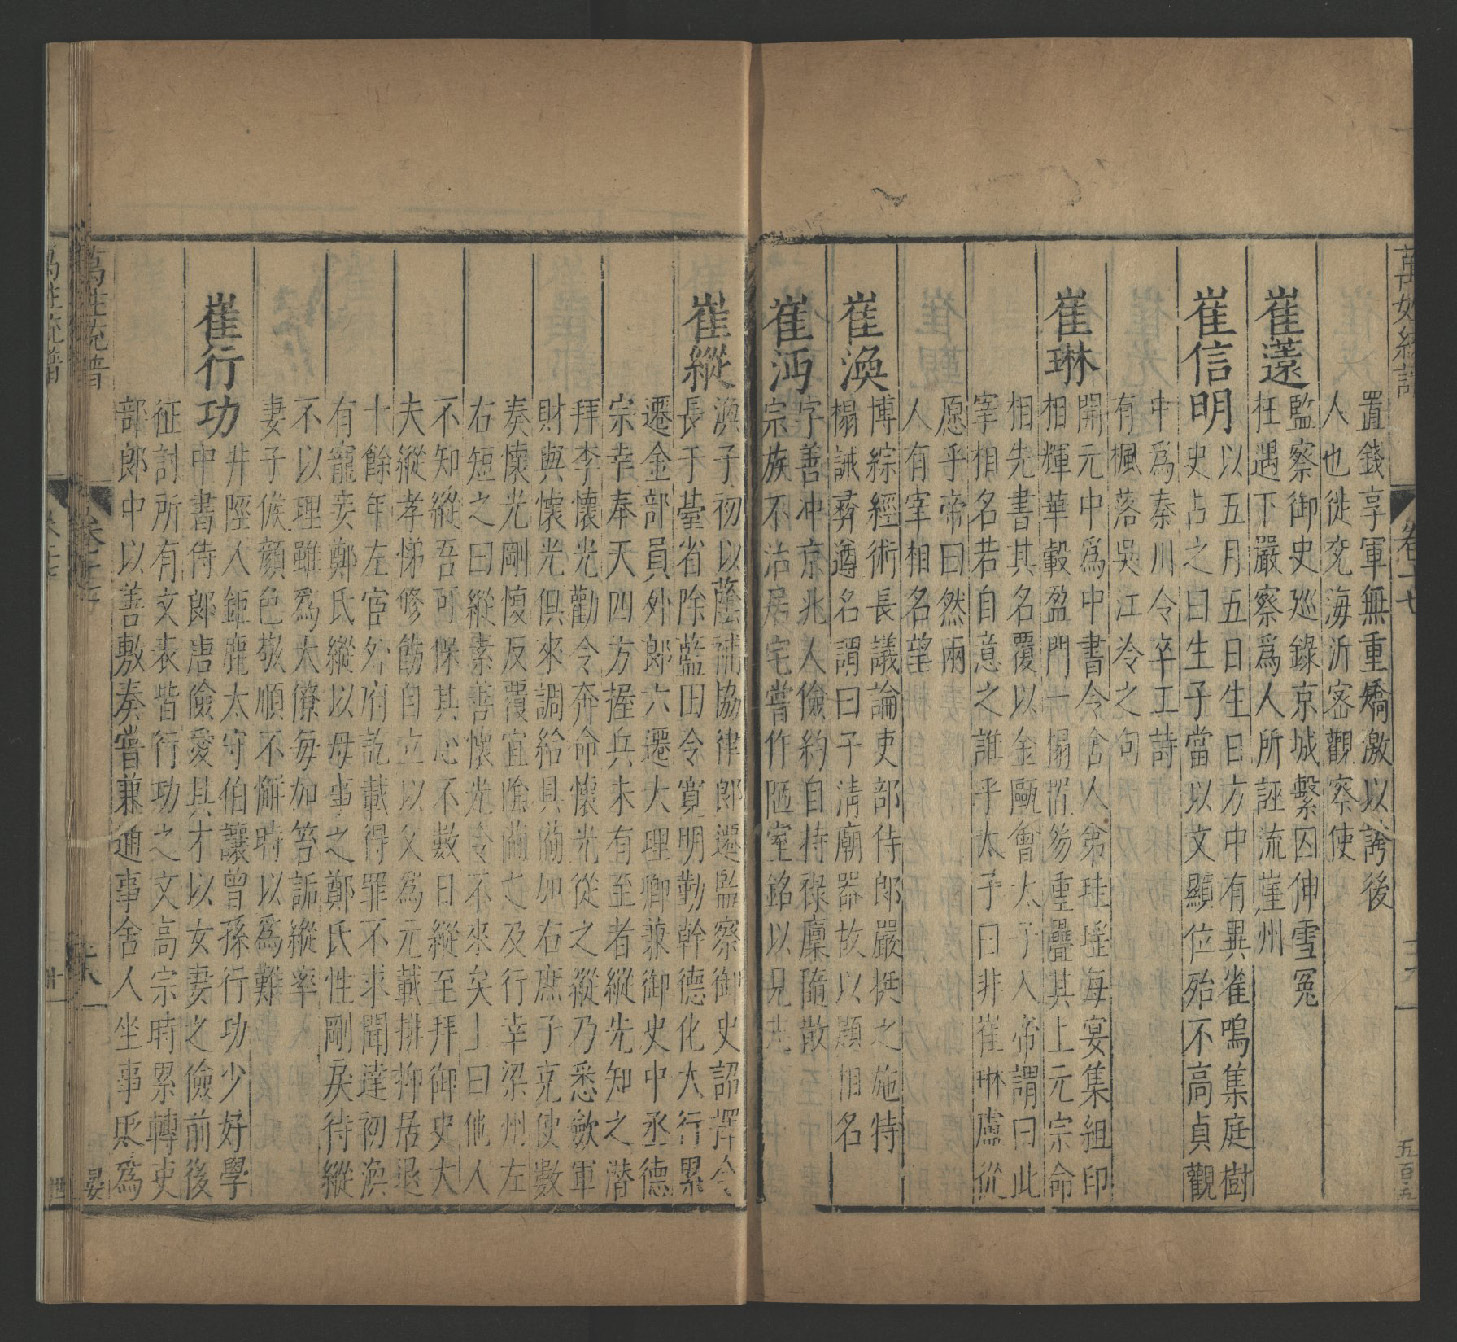 置錢享軍無重矯激以誇後
人也徙兗海沂密觀察使
崔薳
監察御史巡錄京城繫囚伸雪冤
枉遇下嚴察爲人所誣流崖州
崔信明
以五月五日生日方中有異雀鳴集庭樹
史占之曰生子當以文顯位殆不高貞觀
中爲秦川令卒工詩
有楓落吳江冷之句
崔琳
開元中爲中書令舍人弟珪瑤每宴集組印
相輝華轂盈門一榻置笏重疊其上元宗命
相先書其名覆以金甌會太子入帝謂曰此
宰相名若自意之誰乎太子曰非崔琳盧從
愿乎帝曰然兩
人有宰相名望
崔渙
博綜經術長議論吏部侍郎嚴挺之施特
榻試彝遵名謂曰子清廟器故以題相名
崔沔
字善冲京兆人儉約自持祿廩隨散
宗族不治居宅嘗作陋室銘以見志
崔縱
渙子初以蔭補協律郎遷監察御史詔擇令
長于臺省除藍田令寬明勤幹德化大行累
遷金部員外郎六遷大理卿兼御史中丞德
宗幸奉天四方握兵未有至者縱先知之潛
拜李懷光勸令奔命懷光從之縱乃悉斂軍
財與懷光俱來調給具備加右庶子充使數
奏懷光剛愎反覆宜陰備之及行幸梁州左
右短之曰縱素善懷光今不來矣上曰他人
不知縱吾可保其心不數日縱至拜御史大
夫縱孝悌修飭自立以父爲元載排抑居退
十餘年左宦外府訖載得罪不求聞達初渙
有寵妾鄭氏縱以母事之鄭氏性剛戾待縱
不以理雖爲大僚每加笞詬縱率
妻子候顏色敬順不懈時以爲難
崔行功
井陘人鉅鹿太守伯讓曾孫行功少好學
中書侍郎唐儉愛其才以女妻之儉前後
征討所有文表皆行功之文高宗時累轉吏
部郎中以善敷奏嘗兼通事舍人坐事貶爲
萬姓統譜